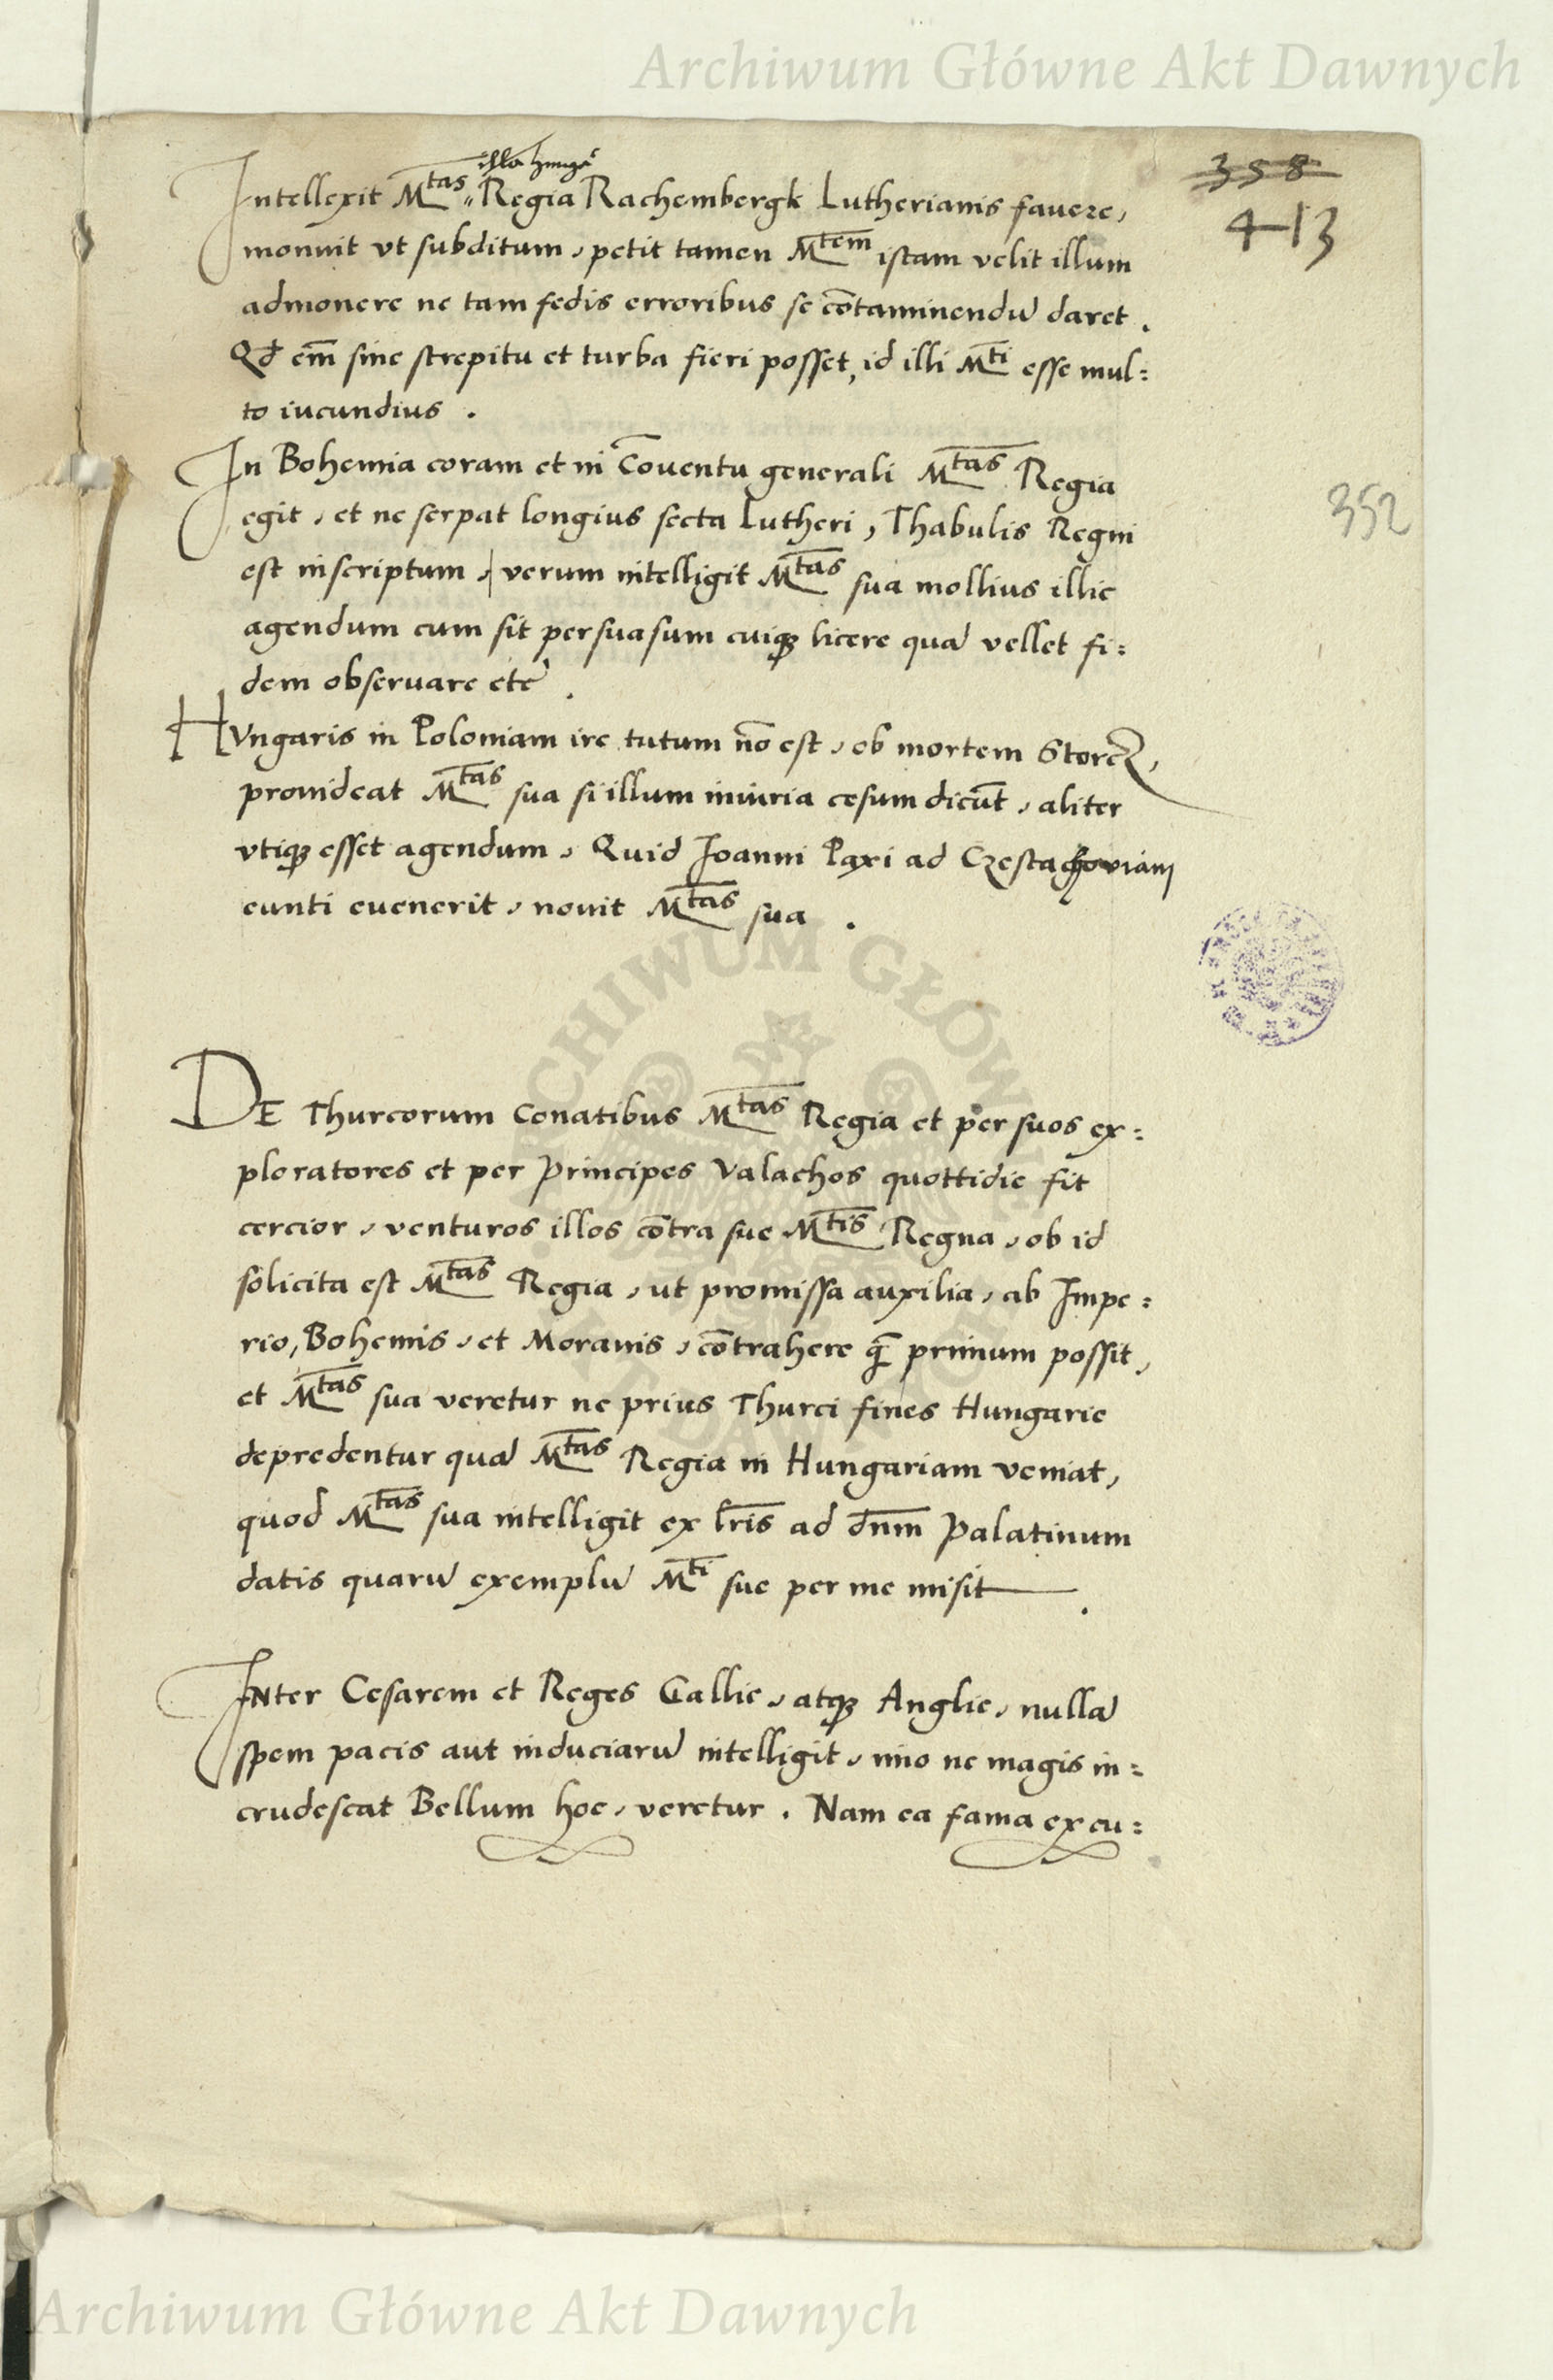 Archiwum Główne Akt Dawnych
358
413
illa hunga
Intellexit M^tas Regia Rachembergk Lutherianis favere,
monuit vt subditum, petit tamen M^tem istam velit illum
admonere ne tam fedis erroribus se cōtaminendū daret.
Qd em̄ sine strepitu et turba fieri posset, id illi M^ti esse mul=
to iucundius.
In Bohemia coram et in Cōuentu generali M^tas Regia
352
egit, et ne serpat longius secta Lutheri, Thabulis Regni
est inscriptum, verum intelligit M^tas sua mollius illic
agendum cum sit persuasum cuiqꝫ licere quā vellet fi=
dem obseruare etc̄.
HVngaris in Poloniam ire tutum nō est, ob mortem Storcz,
prouideat M^tas sua si illum iniuria cesum dicūt, aliter
vtiqꝫ esset agendum, Quid Joanni Paxi ad Czestachoviam
eunti euenerit, nouit M^tas sua.
DE Thurcorum Conatibus M^tas Regia et per suos ex=
ploratores et per Principes Valachos quottidie fit
cercior, venturos illos cōtra sue M^tis Regna, ob id
solicita est M^tas Regia, ut promissa auxilia, ab Impe=
rio, Bohemis, et Morauis, cōtrahere q̄ primum possit,
et M^tas sua veretur ne prius Thurci fines Hungarie
depredentur quā M^tas Regia in Hungariam veniat,
quod M^tas sua intelligit ex lr̄is ad dn̄m Palatinum
datis quarū exemplū M^ti sue per me misit.
INter Cesarem et Reges Gallie, atqꝫ Anglie, nullā
spem pacis aut induciarū intelligit, imo ne magis in=
crudescat Bellum hoc, veretur. Nam ea fama excu=
Archiwum Główne Akt Dawnych